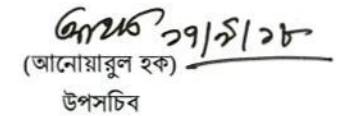 ২৭/৯/১৮
(আনোয়ারুল হক)
উপসচিব